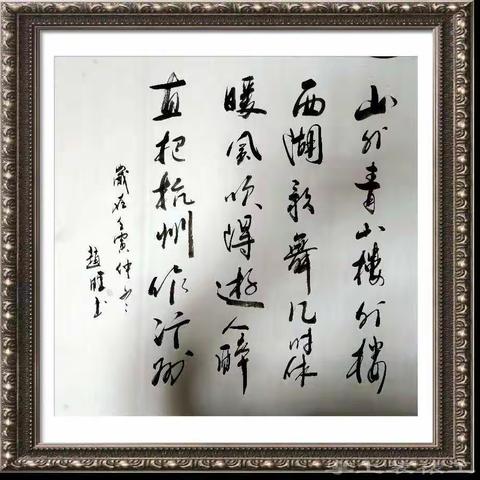 山外青山楼外楼
西湖歌舞几时休
暖风吹得遊人醉
直把杭州作汴州
歲在壬寅仲
趙書